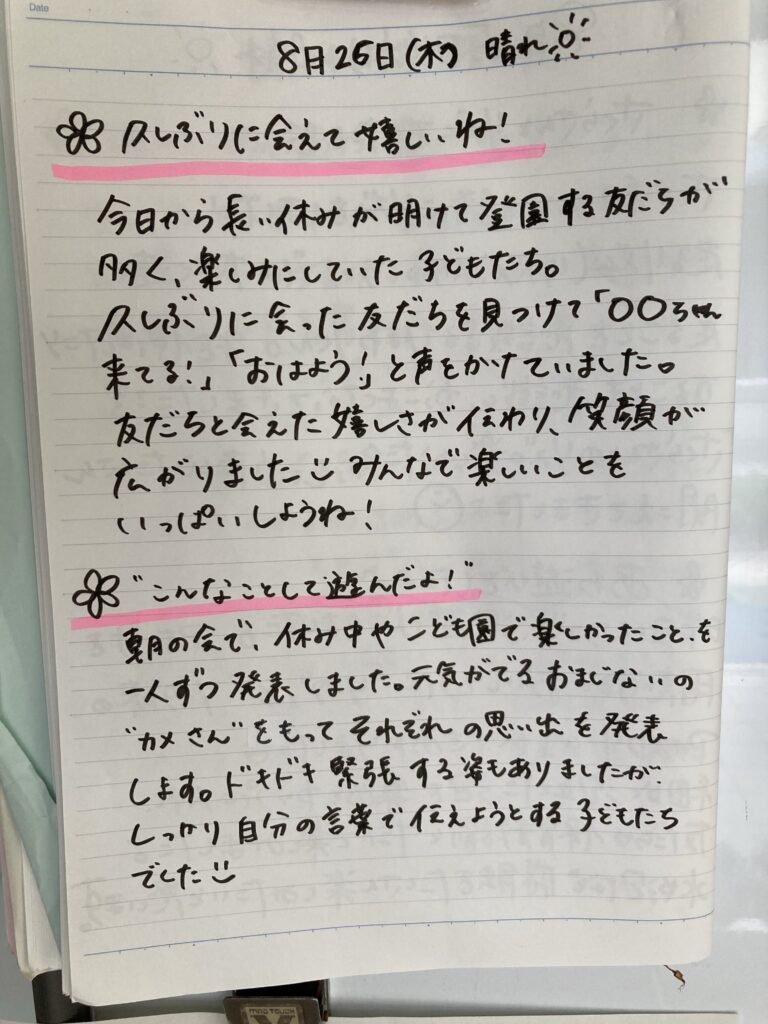 Date
8月25日(木) 晴れ
久しぶりに会えて嬉しいね!
今日から長い休みが明けて登園する友だちが
多く、楽しみにしていた子どもたち。
久しぶりに会った友だちを見つけて「〇〇ちゃん
来てる!」「おはよう!」と声をかけていました。
友だちと会えた嬉しさが伝わり、笑顔が
広がりました みんなで楽しいことを
いっぱいしようね!
"こんなことして遊んだよ!"
朝の会で、休み中やこども園で楽しかったこと、を
一人ずつ発表しました。元気がでるおまじないの
"カメさん"をもってそれぞれの思い出を発表
します。ドキドキ緊張する姿もありましたが、
しっかり自分の言葉で伝えようとする子どもたち
でした
MIND TOUCH